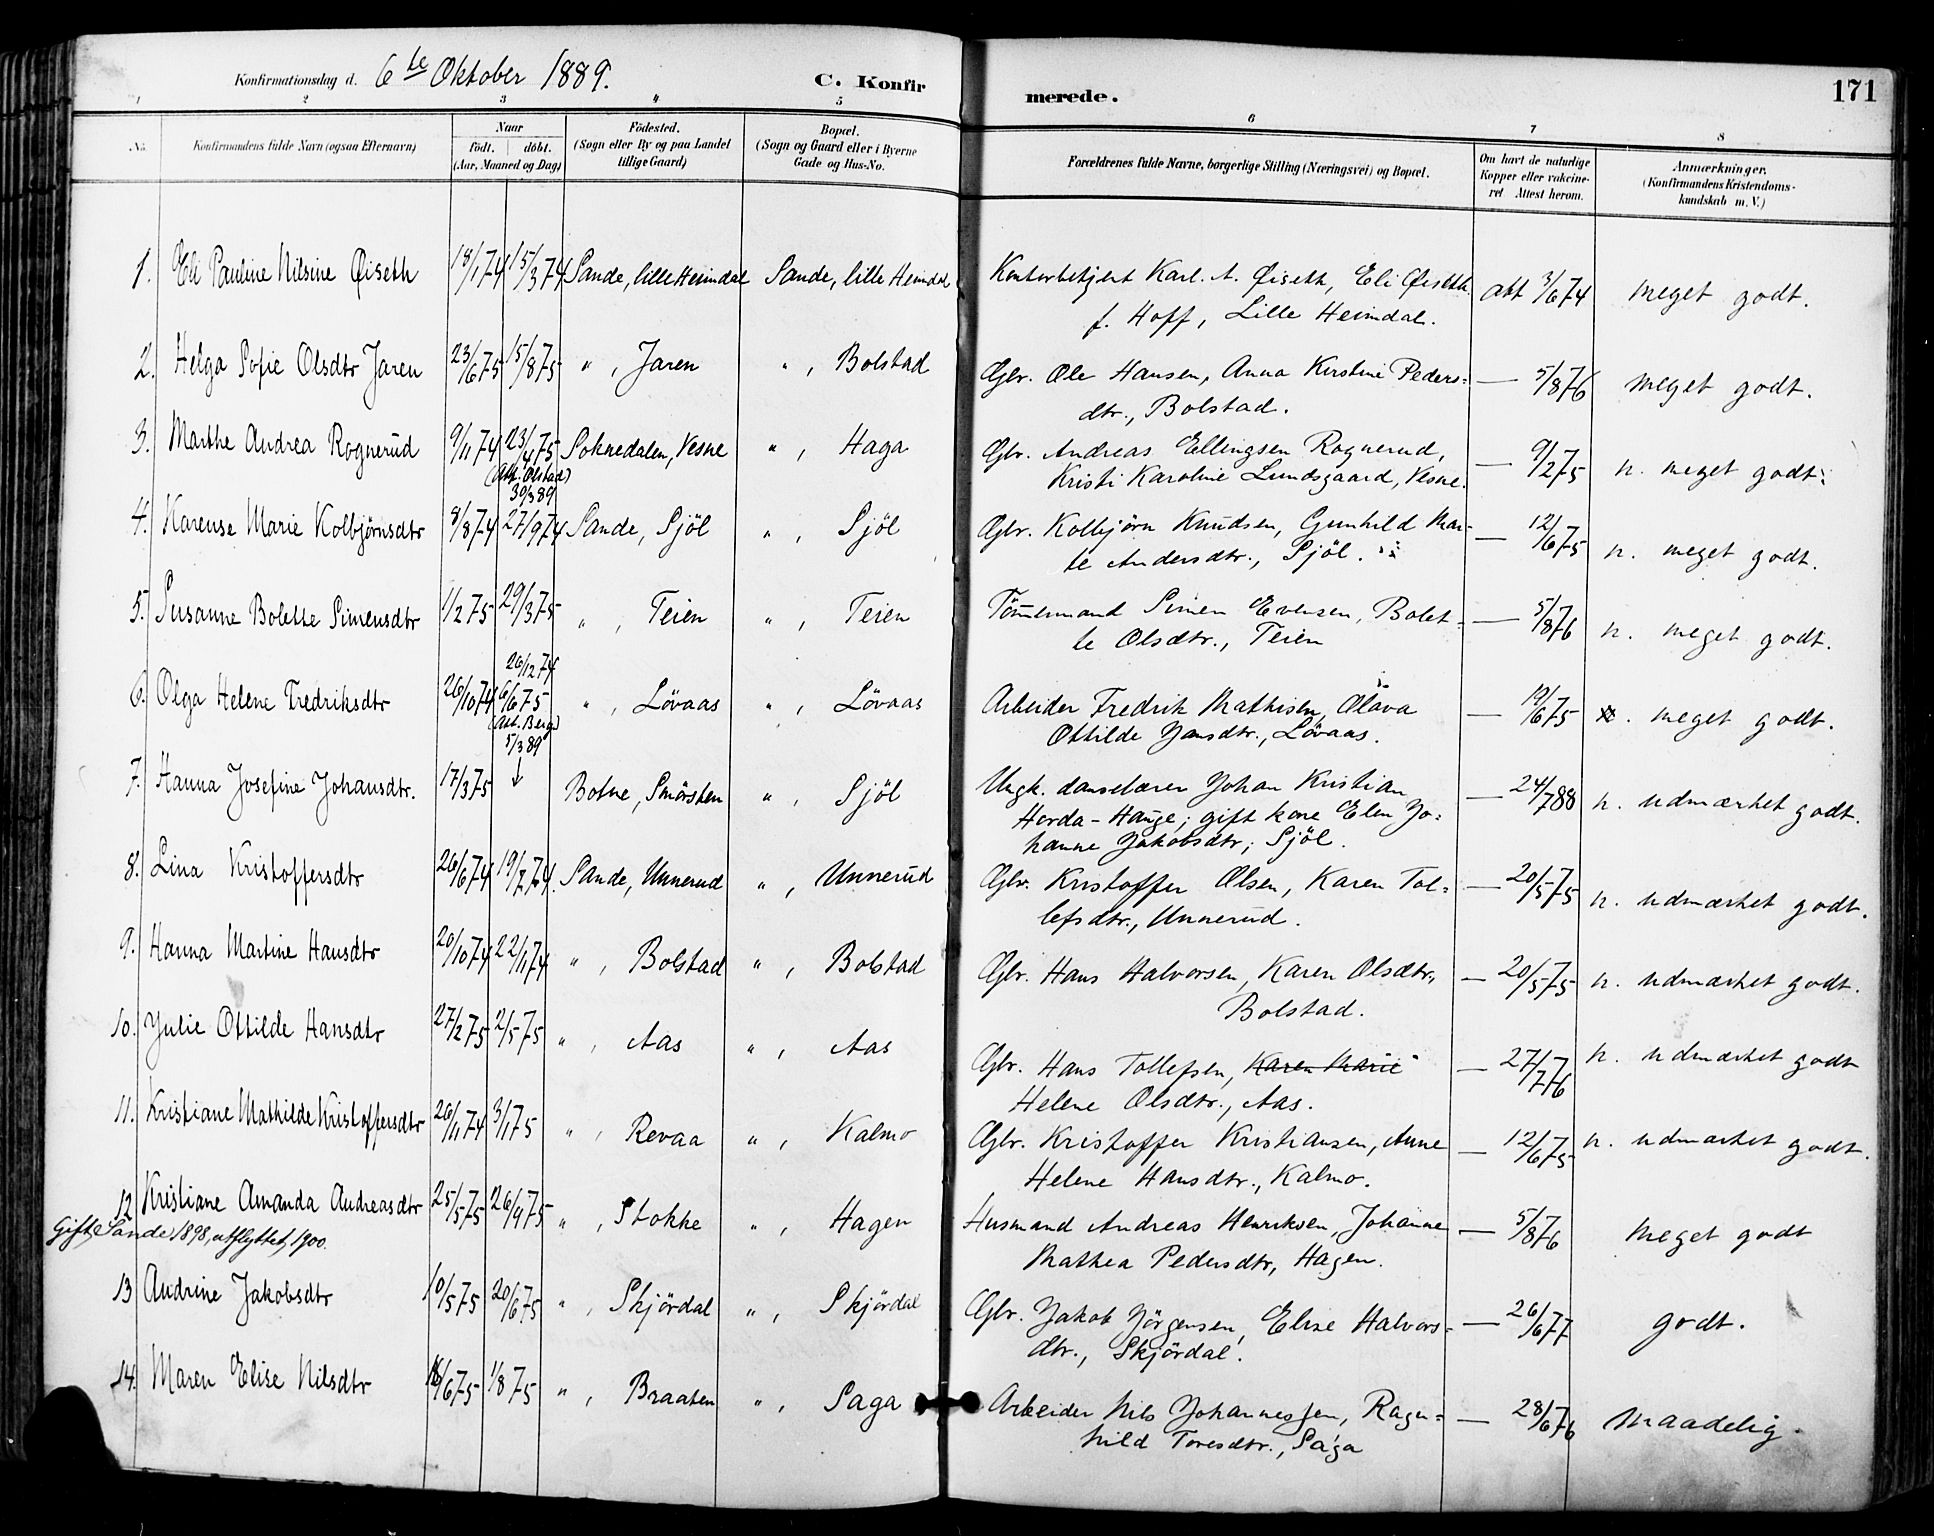 Konfirmationsdag d. 6te Oktober 1889.
C. Konfirmerede.
171
1 2 3 4 5 6 7 8
No. Konfirmandens fulde Navn (ogsaa Efternavn) Naar født. døbt. (Aar, Maaned og Dag) Födested. (Sogn eller By og paa Landet tillige Gaard) Bopæl. (Sogn og Gaard eller i Byerne Gade og Hus-No. Forældrenes fulde Navne, borgerlige Stilling (Næringsvei) og Bopæl. Om havt de naturlige Kopper eller vakcineret Attest herom. Anmærkninger. (Konfirmandens Kristendomskundskab m. V.)
1. Eli Pauline Nilsine Øiseth 18/1 74 15/3 74 Sande, lille Heimdal Sande, lille Heimdal Kontorbetjent Karl. A. Øiseth, Eli Øiseth att 3/6 74 meget godt.
f. Hoff, Lille Heimdal.
2. Helga Sofie Olsdtr Jaren 23/6 75 15/8 75 " , Jaren " , Bolstad Gbr. Ole Hansen, Anna Kirstine Peders= — 5/8 76 meget godt.
dtr., Bolstad.
3. Marthe Andrea Rognerud 9/11 74 23/4 75 Soknedalen, Vesne " , Haga Gbr. Andreas Ellingsen Rognerud, — 9/2 75 n. meget godt.
(Att. Olstad) 30/3 89
Kristi Karoline Lundsgaard, Vesne.
4. Karense Marie Kolbjørnsdtr 8/8 74 27/9 74 Sande, Sjöl " , Sjöl Gbr. Kolbjörn Knudsen, Gunhild Mar= — 12/6 75 n. meget godt.
te Andersdtr., Sjöl.
5. Susanne Bolette Simensdtr 1/2 75 29/3 75 " , Teien " , Teien Tömmermand Simen Evensen, Bolet= — 5/8 76 n. meget godt.
te Olsdtr., Teien
26/12 74
6. Olga Helene Fredriksdtr 26/10 74 6/6 75 " , Lövaas " , Lövaas Arbeider Fredrik Mathisen, Olava — 19/6 75 . meget godt.
(Att. Berg) 5/3 89
Ottilde Jansdtr., Lövaas.
7. Hanna Josefine Johansdtr. 17/3 75 ↓ Botne, Smörsten " , Sjöl Ungk. danselærer Johan Kristian — 24/7 88 n. udmærket godt.
Horda-Hauge; gift kone Elen Jo=
hanne Jakobsdtr; Sjöl.
8. Lina Kristoffersdtr 26/6 74 19/7 74. Sande, Unnerud " , Unnerud Gbr. Kristoffer Olsen, Karen Tol= — 20/5 75 n. udmærket godt.
lefsdtr., Unnerud.
9. Hanna Martine Hansdtr 20/10 74 22/11 74 " , Bolstad " , Bolstad Gbr. Hans Halvorsen, Karen Olsdtr, — 20/5 75 n. udmærket godt.
Bolstad.
10. Julie Ottilde Hansdtr 27/2 75 2/5 75 " , Aas " , Aas Gbr. Hans Tollefsen, Karen Marie — 27/7 76 n. udmærket godt
Helene Olsdtr., Aas.
11. Kristiane Mathilde Kristoffersdtr 26/11 74 3/1 75 " , Revaa " , Kalmo Gbr. Kristoffer Kristiansen, Anne — 12/6 75 n. udmærket godt.
Helene Hansdtr., Kalmo.
12 Kristiane Amanda Andreasdtr 25/5 75 26/9 75 " , Stokke " , Hagen Husmand Andreas Henriksen, Johanne — 5/8 76 Meget godt
Gift, Sande 1898, utflyttet, 1900.
Mathea Pedersdtr, Hagen.
13 Andrine Jakobsdtr 10/5 75 20/6 75 " , Skjördal " , Skjördal Gbr. Jakob Jörgensen, Elise Halvors= — 26/6 77 godt.
dtr., Skjördal.
14. Maren Elise Nilsdtr /6 75 1/8 75 " , Braaten " , Saga Arbeider Nils Johannessen, Ragn= — 28/6 76 Maadelig.
hild Toresdtr., Saga